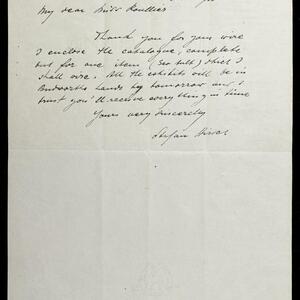 My dear Miss
Thank you for your wire
I enclose the catalogue, complete
but for one item (see bill) which I
shall wire. All the exhibits will be in
hands by tomorrow and I
trust you'll receive everything in time
Yours very sincerely
Stefan